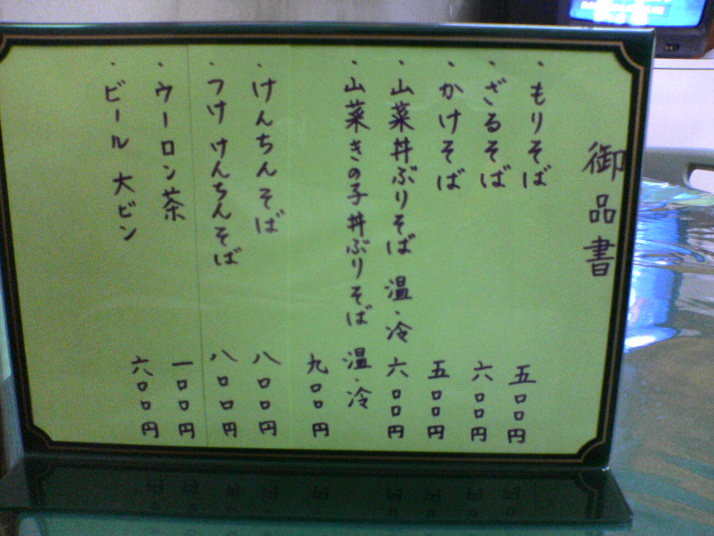 御品書
・もりそば 五〇〇円
・ざるそば 六〇〇円
・かけそば 五〇〇円
・山菜丼ぶりそば 温・冷 六〇〇円
・山菜きの子丼ぶりそば 温・冷
九〇〇円
・けんちんそば 八〇〇円
・つけけんちんそば 八〇〇円
・ウーロン茶 一〇〇円
・ビール 大ビン 六〇〇円